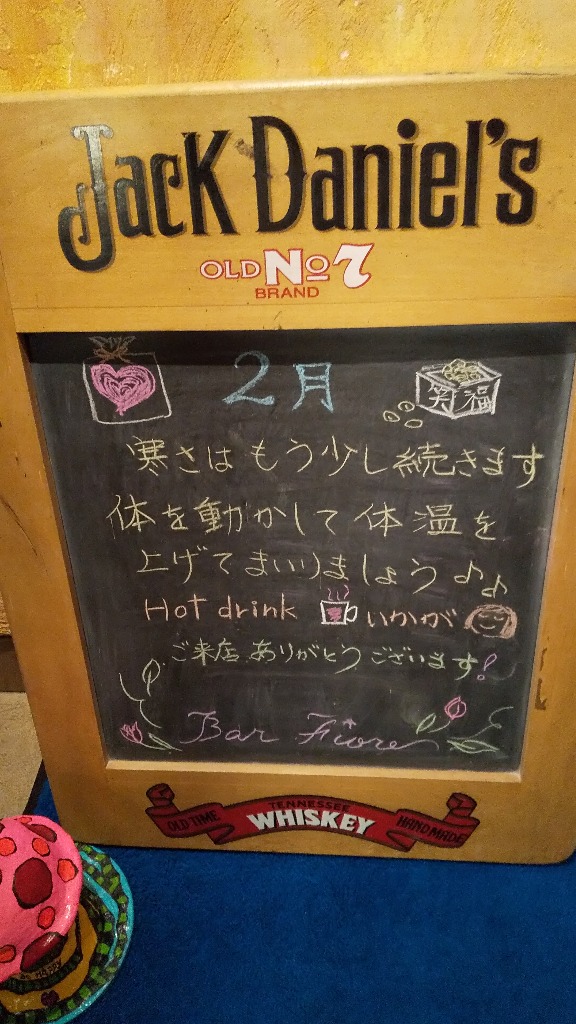 Jack Daniel's
OLD No 7
BRAND
2月
笑 福
寒さはもう少し続きます
体を動かして体温を
上げてまいりましょう♪♪
Hot drink いかが
ご来店ありがとうございます!
Bar Fiore
TENNESSEE
OLD TIME WHISKEY HAND MADE
HAPPY